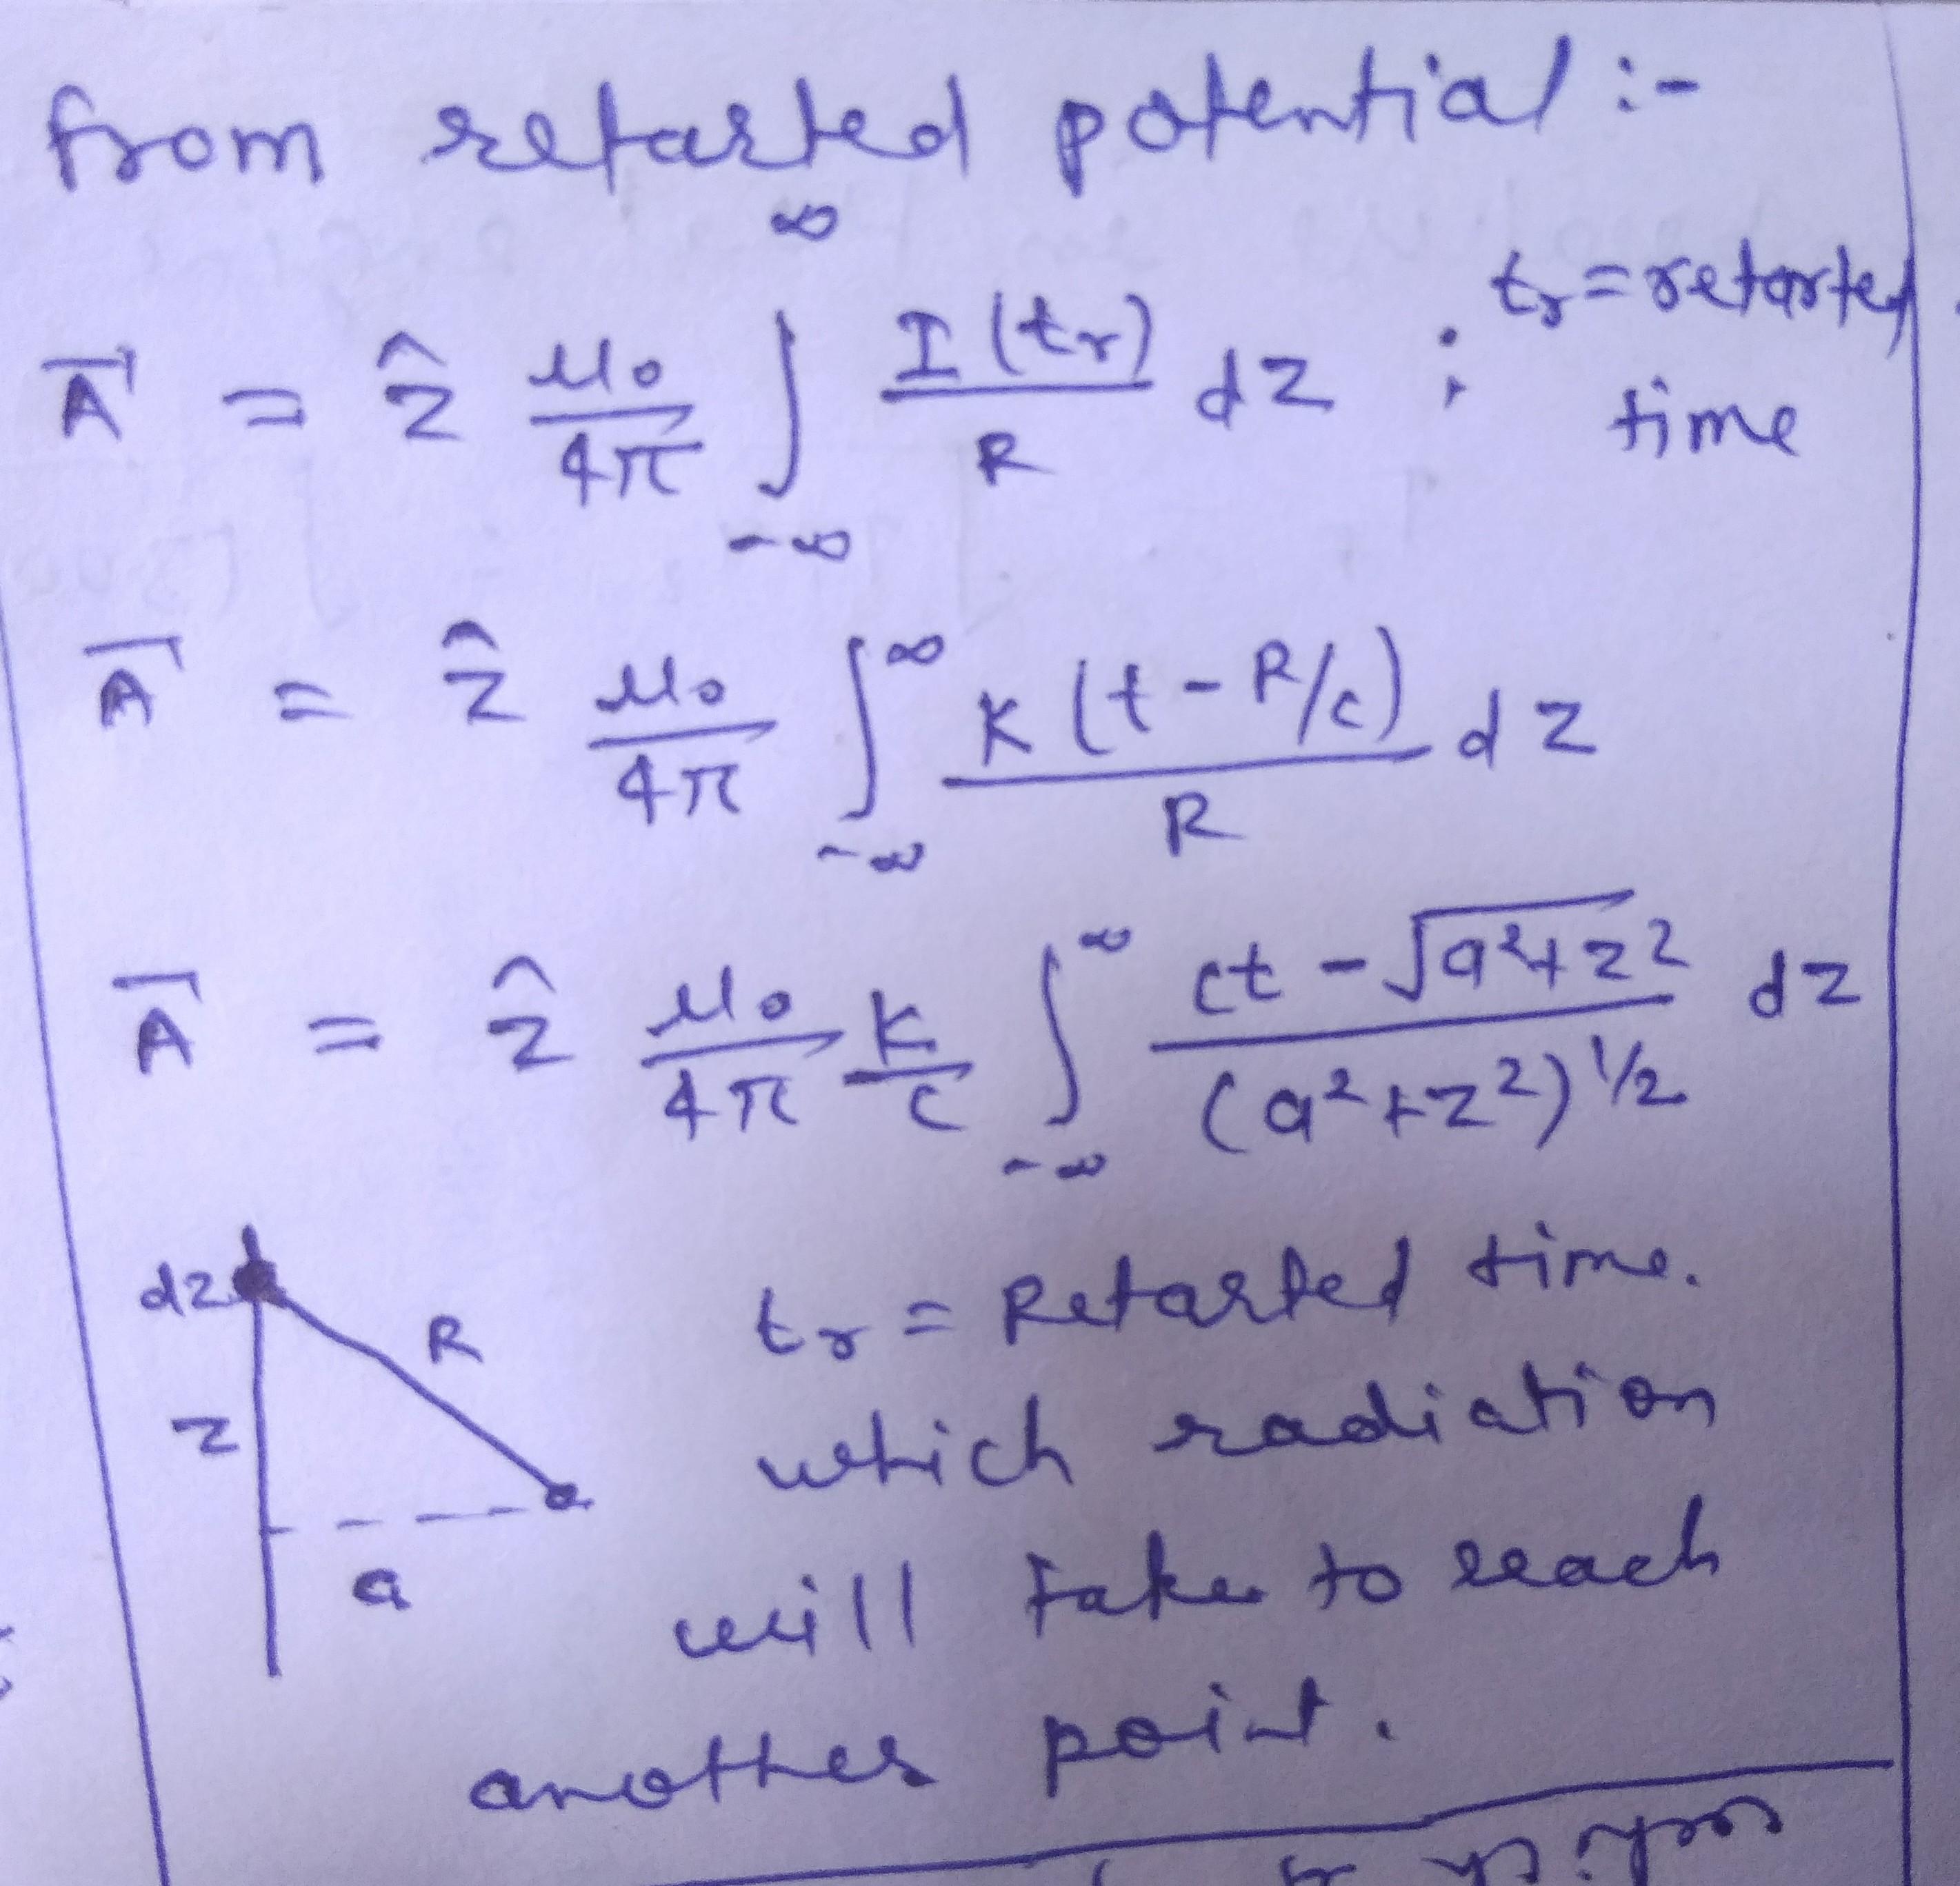 from retarted potential :-
A⃗ = ẑ μ₀/4π ∫_{-∞}^{∞} I(tr)/R dz ; tr = retarted time
A⃗ = ẑ μ₀/4π ∫_{-∞}^{∞} K(t - R/c)/R dz
A⃗ = ẑ μ₀/4π K/c ∫_{-∞}^{∞} (ct - √a²+z²)/(a²+z²)^{1/2} dz
dz
R
z
a
tr = Retarted time.
which radiation
will take to reach
another point.